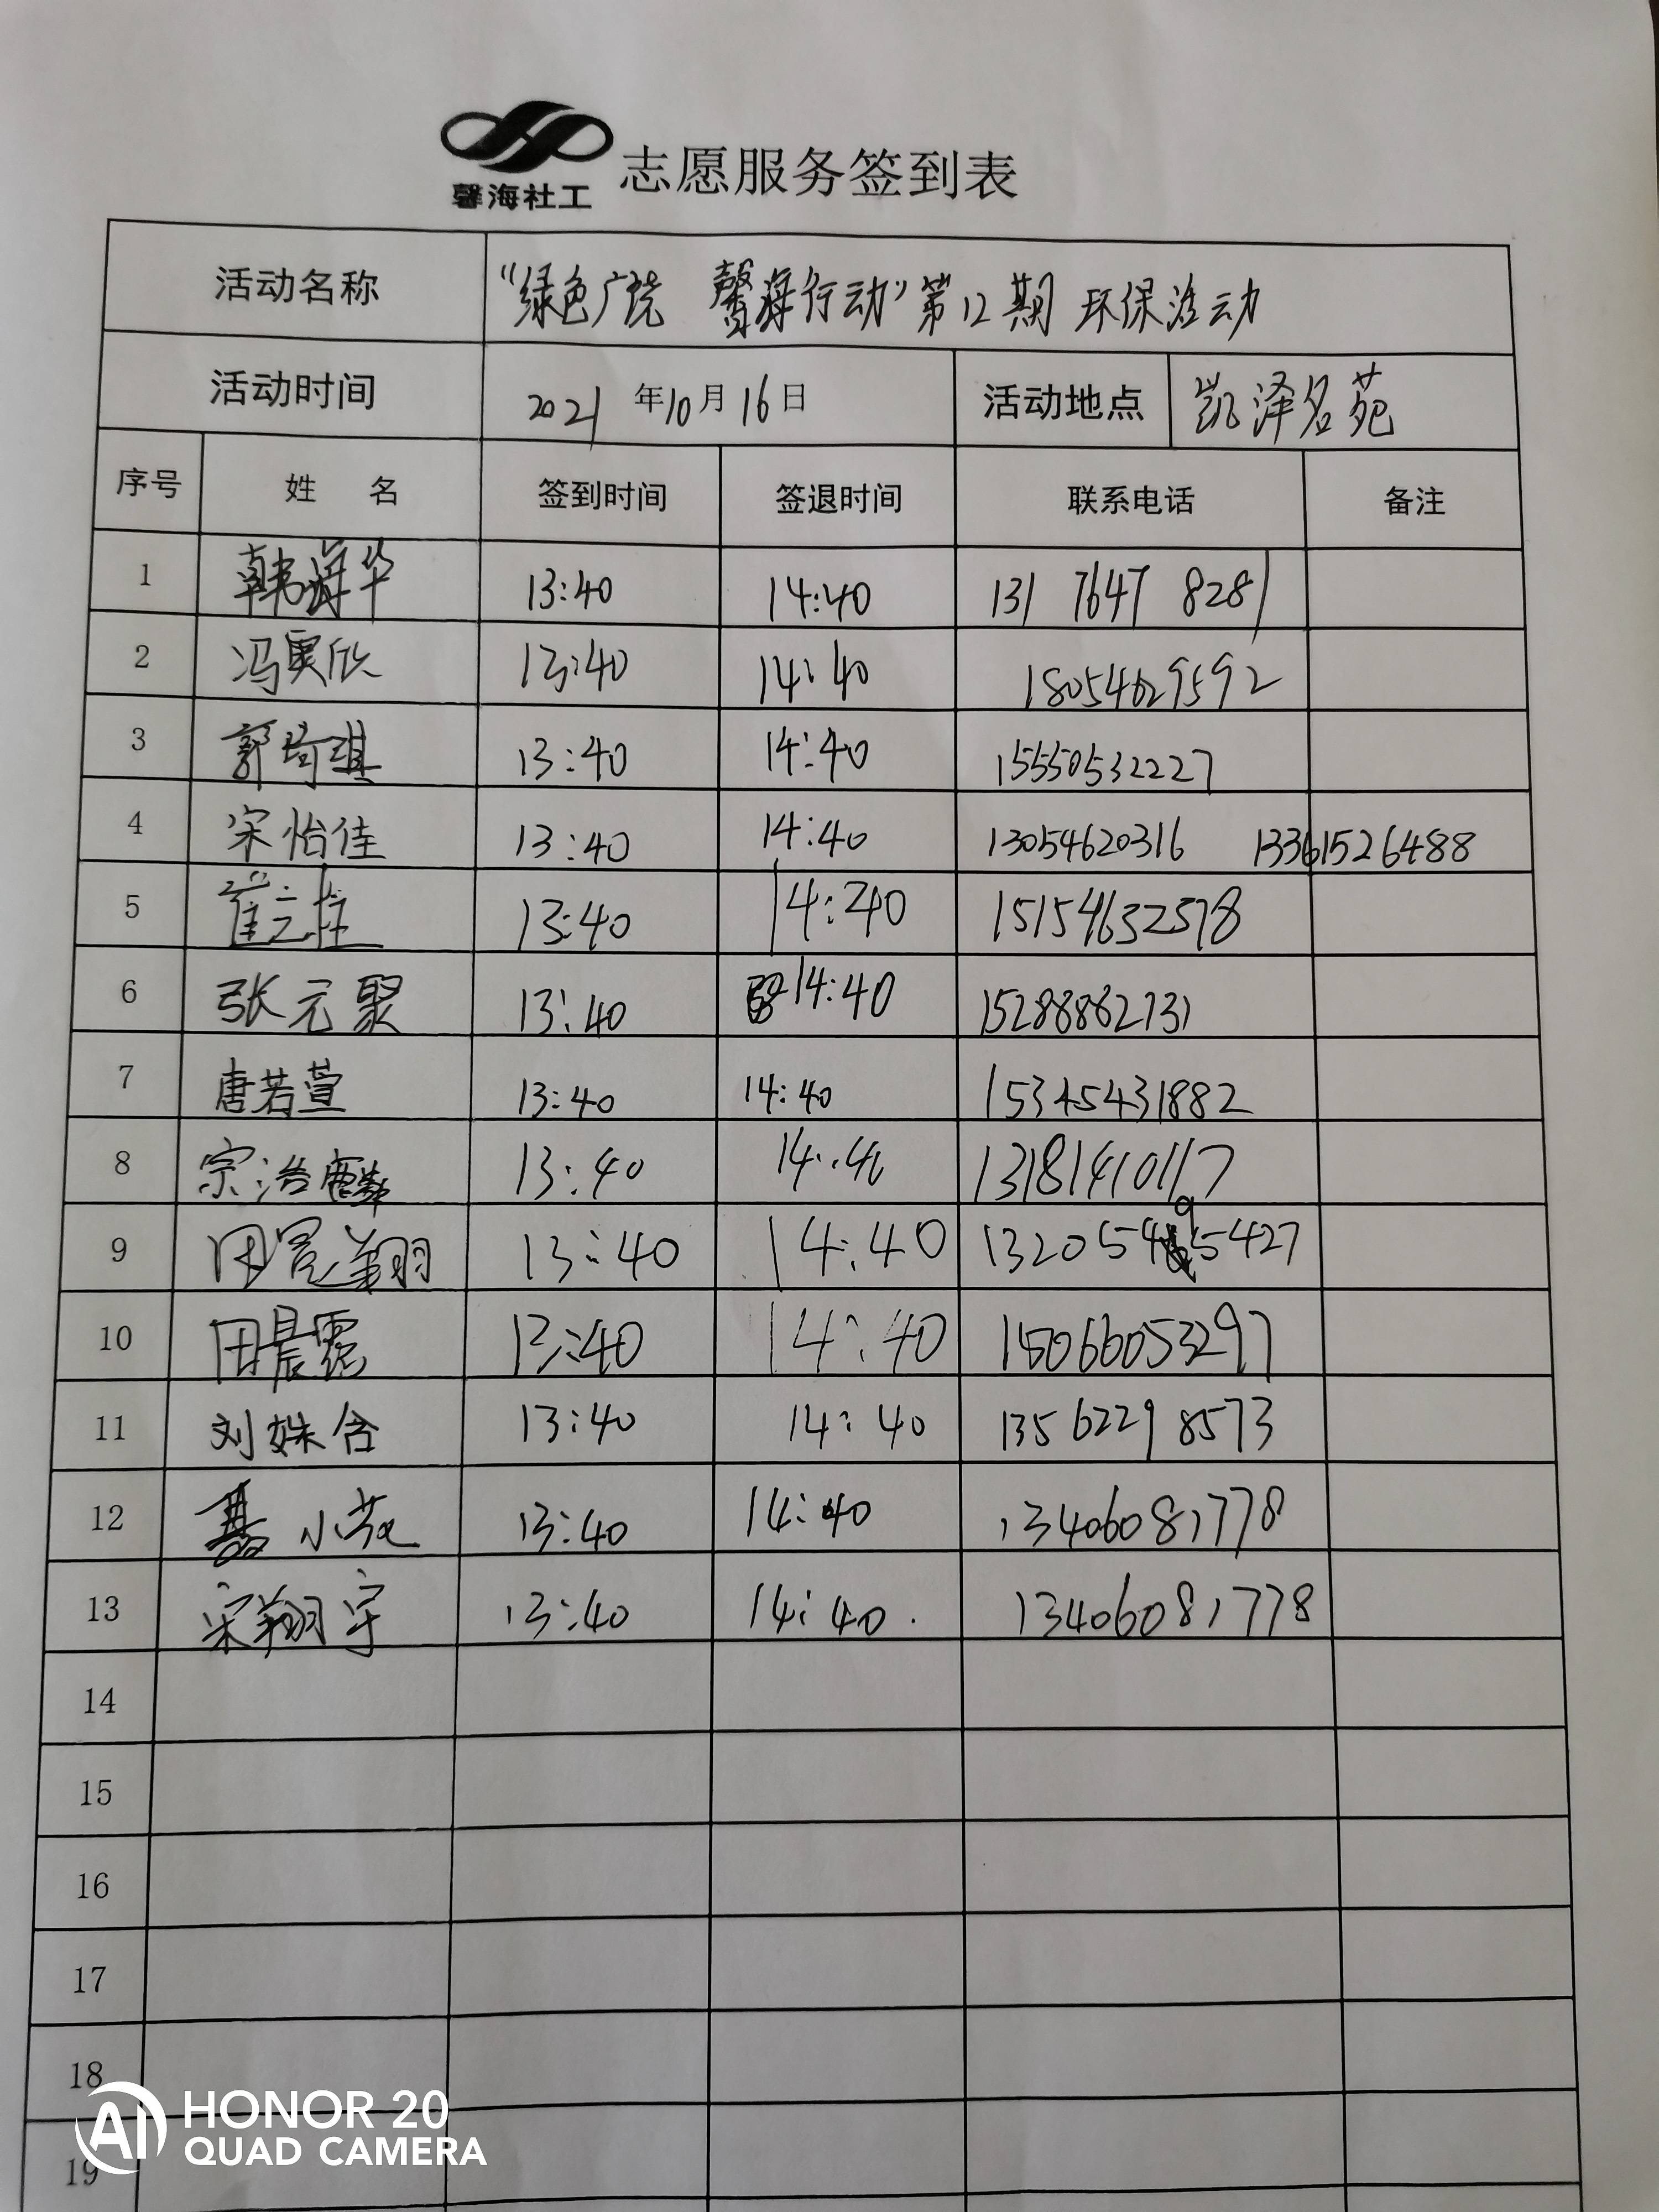 馨海社工 志愿服务签到表
活动名称 “绿色广饶 馨海行动”第12期 环保活动
活动时间 2021年10月16日 活动地点 凯泽名苑
序号 姓 名 签到时间 签退时间 联系电话 备注
1 韩海华 13:40 14:40 131 7647 8281
2 冯奕欣 13:40 14:40 18054629592
3 郭琦琪 13:40 14:40 15550532227
4 宋怡佳 13:40 14:40 13054620316 13361526488
5 崔云佳 13:40 14:40 15154632578
6 张元聚 13:40 14:40 15288862731
7 唐若萱 13:40 14:40 15345431882
8 宗浩麟 13:40 14:40 13181410117
9 田冕翔 13:40 14:40 13205495427
10 田晨露 13:40 14:40 15066053297
11 刘姝含 13:40 14:40 13562298573
12 小苑 13:40 14:40 13406081778
13 宋翔宇 13:40 14:40. 13406081778
14
15
16
17
18
19
AI HONOR 20
QUAD CAMERA